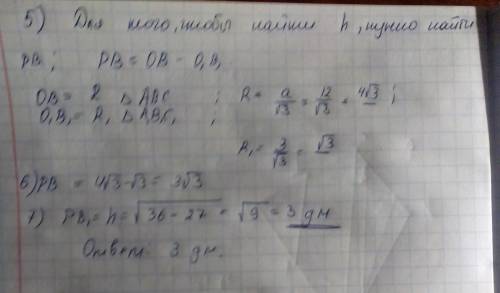 5) Для того, чтобы найти h, нужно найти
PB; PB = OB - O₁B₁
OB = R △ ABC; R = a/√3 = 12/√3 = 4√3;
O₁B₁ = R₁ △ A₁B₁C₁;
R₁ = 3/√3 = √3
6) PB = 4√3 - √3 = 3√3
7) PB₁ = h = √36 - 27 = √9 = 3 дм
Ответ: 3 дм.